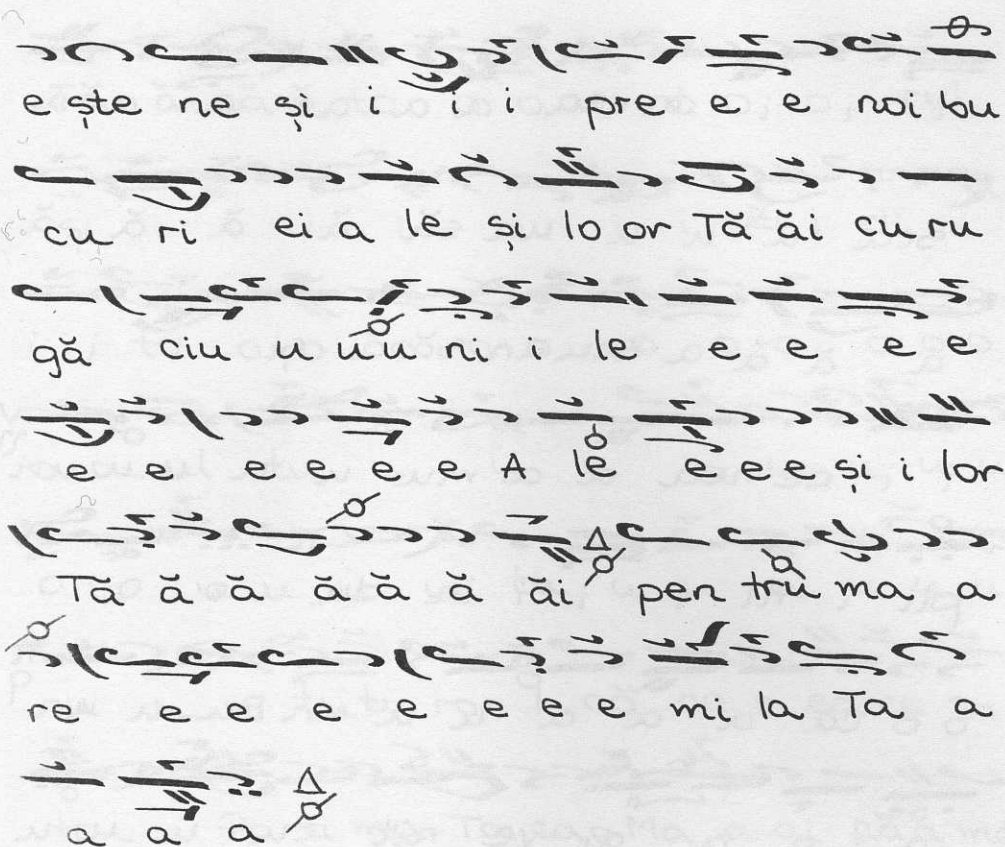 e ște ne și i i i pre e e noi bu
cu ri ei a le și lo or Tă ăi cu ru
gă ciu u u u ni i le e e e e
e e e e e e A le e e e și i lor
Tă ă ă ă ă ă ăi pen tru ma a a
re e e e e e e mi la Ta a
a a a